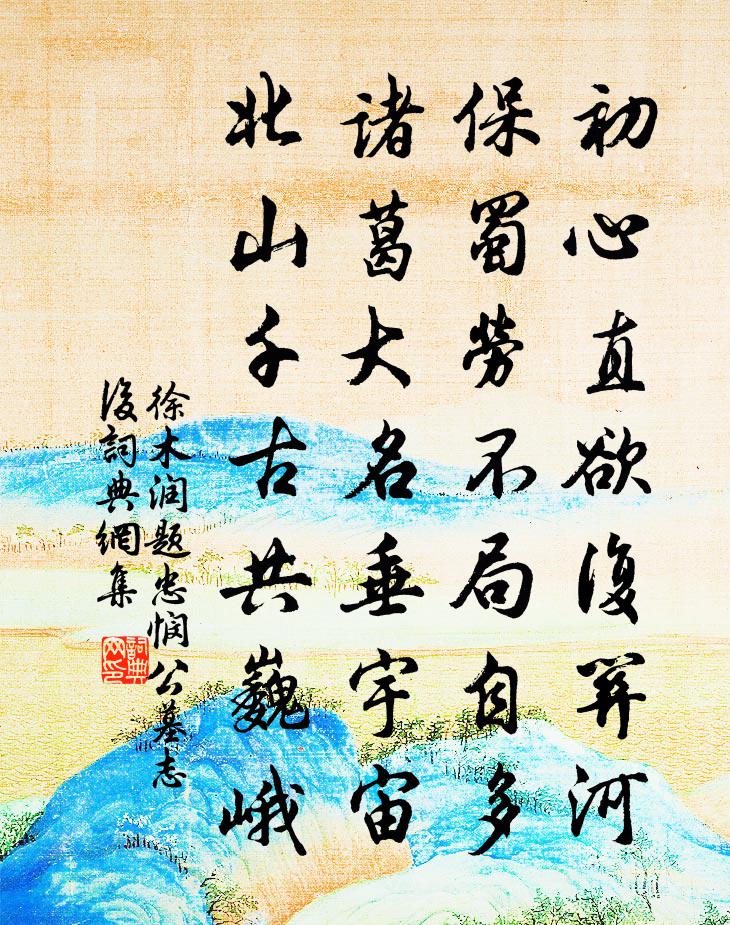 初心直欲復關河
保蜀勞不局自多
诸葛大名垂宇宙
北山千古共巍峨
徐木润題忠悯公墓志
後詞典網集
詞典
网印